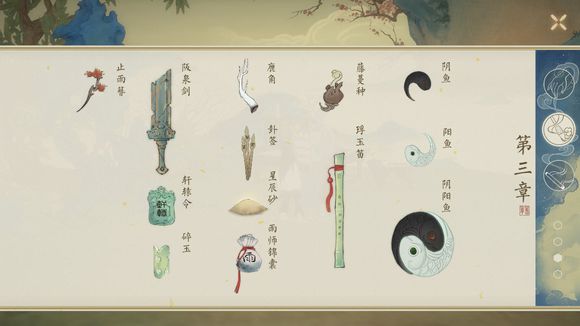 第三章
阴鱼
阳鱼
阴阳鱼
藤蔓种
琈玉笛
鹿角
星辰砂
雨师锦囊
雨
阪泉剑
轩辕令
軒轅
碎玉
止雨簪